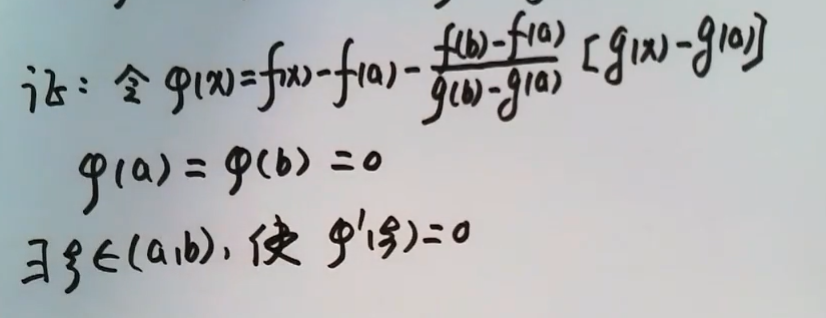 证: 令 φ(x)=f(x)-f(a)-\frac{f(b)-f(a)}{g(b)-g(a)}[g(x)-g(a)]
φ(a)=φ(b)=0
∃ξ∈(a,b), 使 φ'(ξ)=0